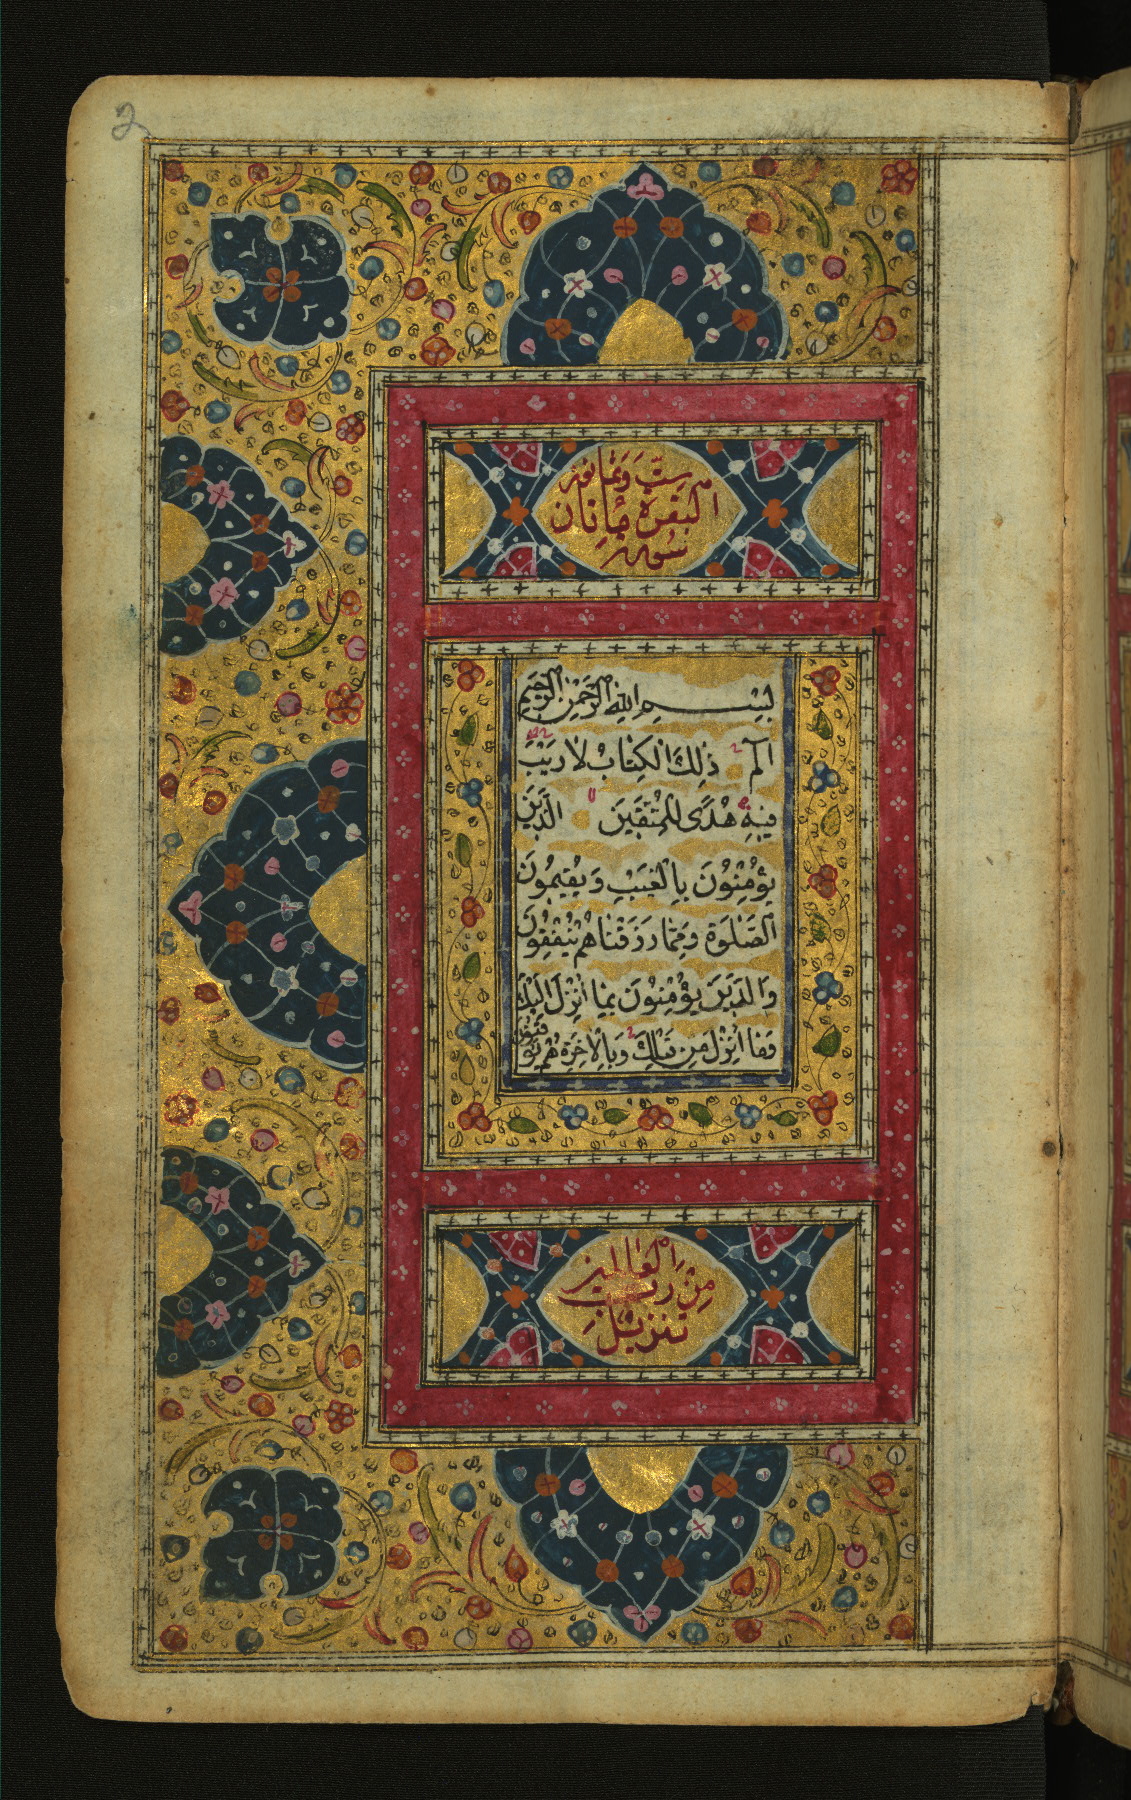 2
ستّ وثمانون
البقرة مأتان
سورة
بِسْمِ اللهِ الرَّحْمٰنِ الرَّحِيمِ
الٓمٓ ذٰلِكَ الْكِتَابُ لَا رَيْبَ
فِيهِ هُدًى لِلْمُتَّقِينَ الَّذِينَ
يُؤْمِنُونَ بِالْغَيْبِ وَيُقِيمُونَ
الصَّلٰوةَ وَمِمَّا رَزَقْنَاهُمْ يُنْفِقُونَ
وَالَّذِينَ يُؤْمِنُونَ بِمَا أُنْزِلَ إِلَيْكَ
وَمَا أُنْزِلَ مِنْ قَبْلِكَ وَبِالْآخِرَةِ هُمْ يُوقِنُونَ
مِنْ رَبِّ الْعَالَمِينَ
تَنْزِيلٌ